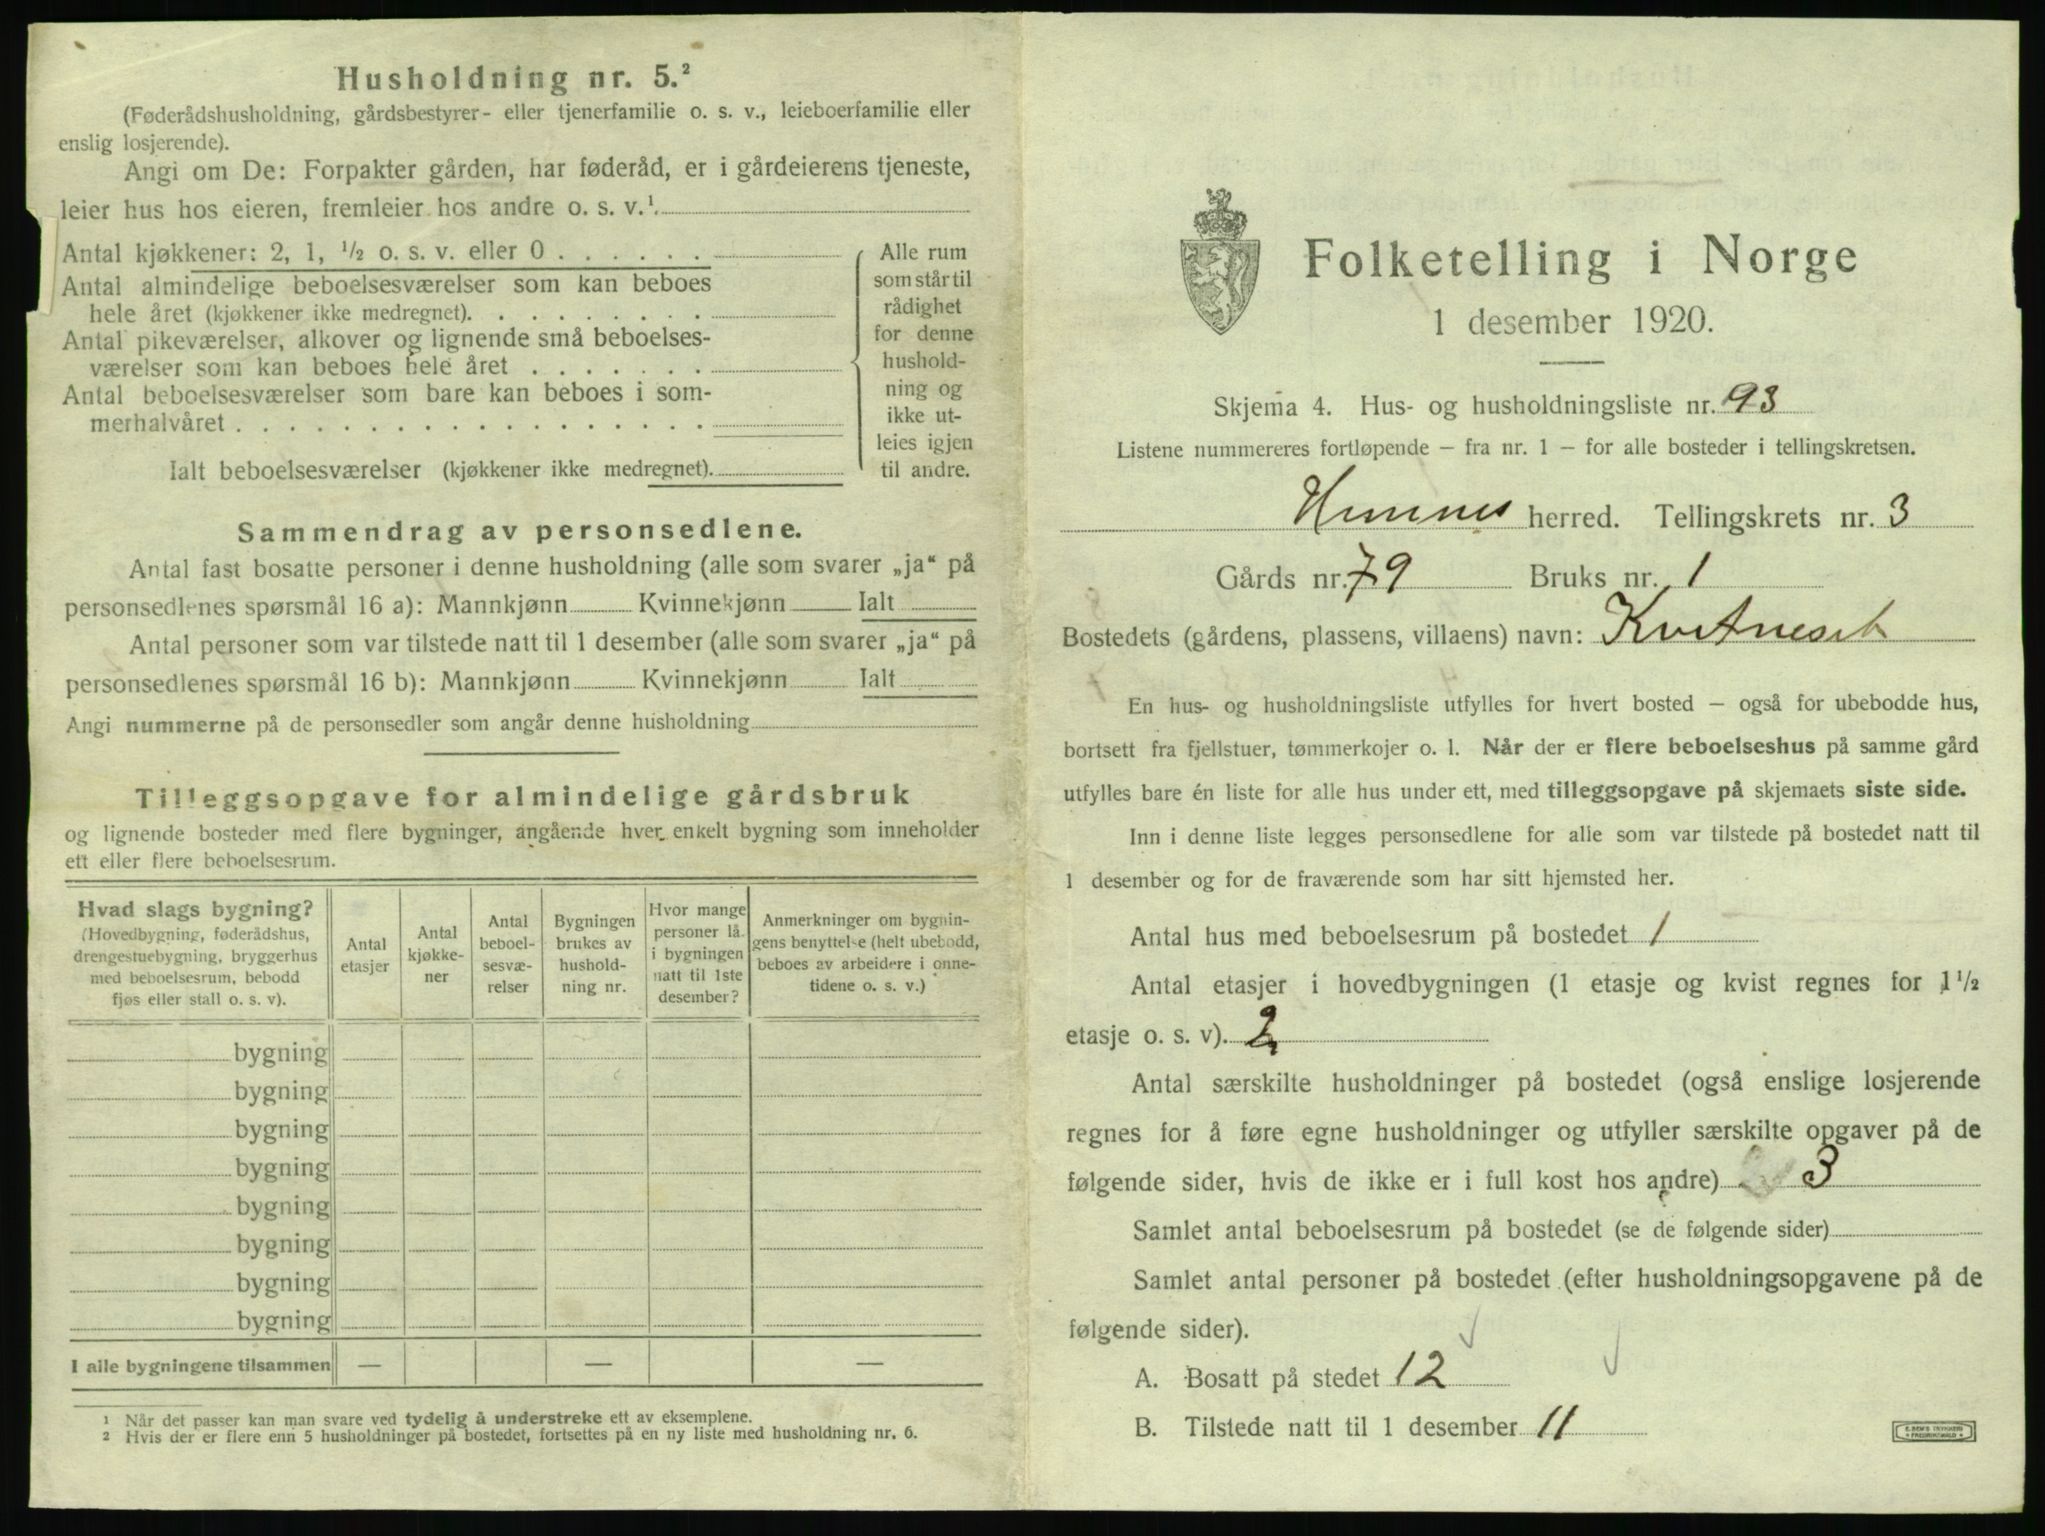 Husholdning nr. 5.²
(Føderådshusholdning, gårdsbestyrer- eller tjenerfamilie o. s. v., leieboerfamilie eller
enslig losjerende).
Angi om De: Forpakter gården, har føderåd, er i gårdeierens tjeneste,
leier hus hos eieren, fremleier hos andre o. s. v.¹.
Antal kjøkkener: 2, 1, ½ o. s. v. eller 0 . . . . . .
Antal almindelige beboelsesværelser som kan beboes
hele året (kjøkkener ikke medregnet). . . . . . . . .
Antal pikeværelser, alkover og lignende små beboelses-
værelser som kan beboes hele året . . . . . . .
Antal beboelsesværelser som bare kan beboes i som-
merhalvåret . . . . . . . . . . . . . . . . . .
Ialt beboelsesværelser (kjøkkener ikke medregnet).
Alle rum
som står til
rådighet
for denne
hushold-
ning og
ikke ut-
leies igjen
til andre.
Sammendrag av personsedlene.
Antal fast bosatte personer i denne husholdning (alle som svarer „ja“ på
personsedlenes spørsmål 16 a): Mannkjønn Kvinnekjønn Ialt
Antal personer som var tilstede natt til 1 desember (alle som svarer „ja“ på
personsedlenes spørsmål 16 b): Mannkjønn Kvinnekjønn Ialt
Angi nummerne på de personsedler som angår denne husholdning
Tilleggsopgave for almindelige gårdsbruk
og lignende bosteder med flere bygninger, angående hver enkelt bygning som inneholder
ett eller flere beboelsesrum.
Hvad slags bygning?
(Hovedbygning, føderådshus,
drengestuebygning, bryggerhus
med beboelsesrum, bebodd
fjøs eller stall o. s. v).
Antal
etasjer
Antal
kjøkke-
ner
Antal
beboel-
sesvæ-
relser
Bygningen
brukes av
hushold-
ning nr.
Hvor mange
personer lå
i bygningen
natt til 1ste
desember?
Anmerkninger om bygnin-
gens benyttelse (helt ubebodd,
beboes av arbeidere i onne-
tidene o. s. v.)
bygning
bygning
bygning
bygning
bygning
bygning
bygning
bygning
I alle bygningene tilsammen — — —
¹ Når det passer kan man svare ved tydelig å understreke ett av eksemplene.
² Hvis der er flere enn 5 husholdninger på bostedet, fortsettes på en ny liste med husholdning nr. 6.
Folketelling i Norge
1 desember 1920.
Skjema 4. Hus- og husholdningsliste nr. 93
Listene nummereres fortløpende – fra nr. 1 – for alle bosteder i tellingskretsen.
Hemnes herred. Tellingskrets nr. 3
Gårds nr. 79 Bruks nr. 1
Bostedets (gårdens, plassens, villaens) navn: Kvitneset
En hus- og husholdningsliste utfylles for hvert bosted – også for ubebodde hus,
bortsett fra fjellstuer, tømmerkojer o. l. Når der er flere beboelseshus på samme gård
utfylles bare én liste for alle hus under ett, med tilleggsopgave på skjemaets siste side.
Inn i denne liste legges personsedlene for alle som var tilstede på bostedet natt til
1 desember og for de fraværende som har sitt hjemsted her.
Antal hus med beboelsesrum på bostedet 1
Antal etasjer i hovedbygningen (1 etasje og kvist regnes for 1½
etasje o. s. v). 2
Antal særskilte husholdninger på bostedet (også enslige losjerende
regnes for å føre egne husholdninger og utfyller særskilte opgaver på de
følgende sider, hvis de ikke er i full kost hos andre) 3
Samlet antal beboelsesrum på bostedet (se de følgende sider)
Samlet antal personer på bostedet (efter husholdningsopgavene på de
følgende sider).
A. Bosatt på stedet 12
B. Tilstede natt til 1 desember 11